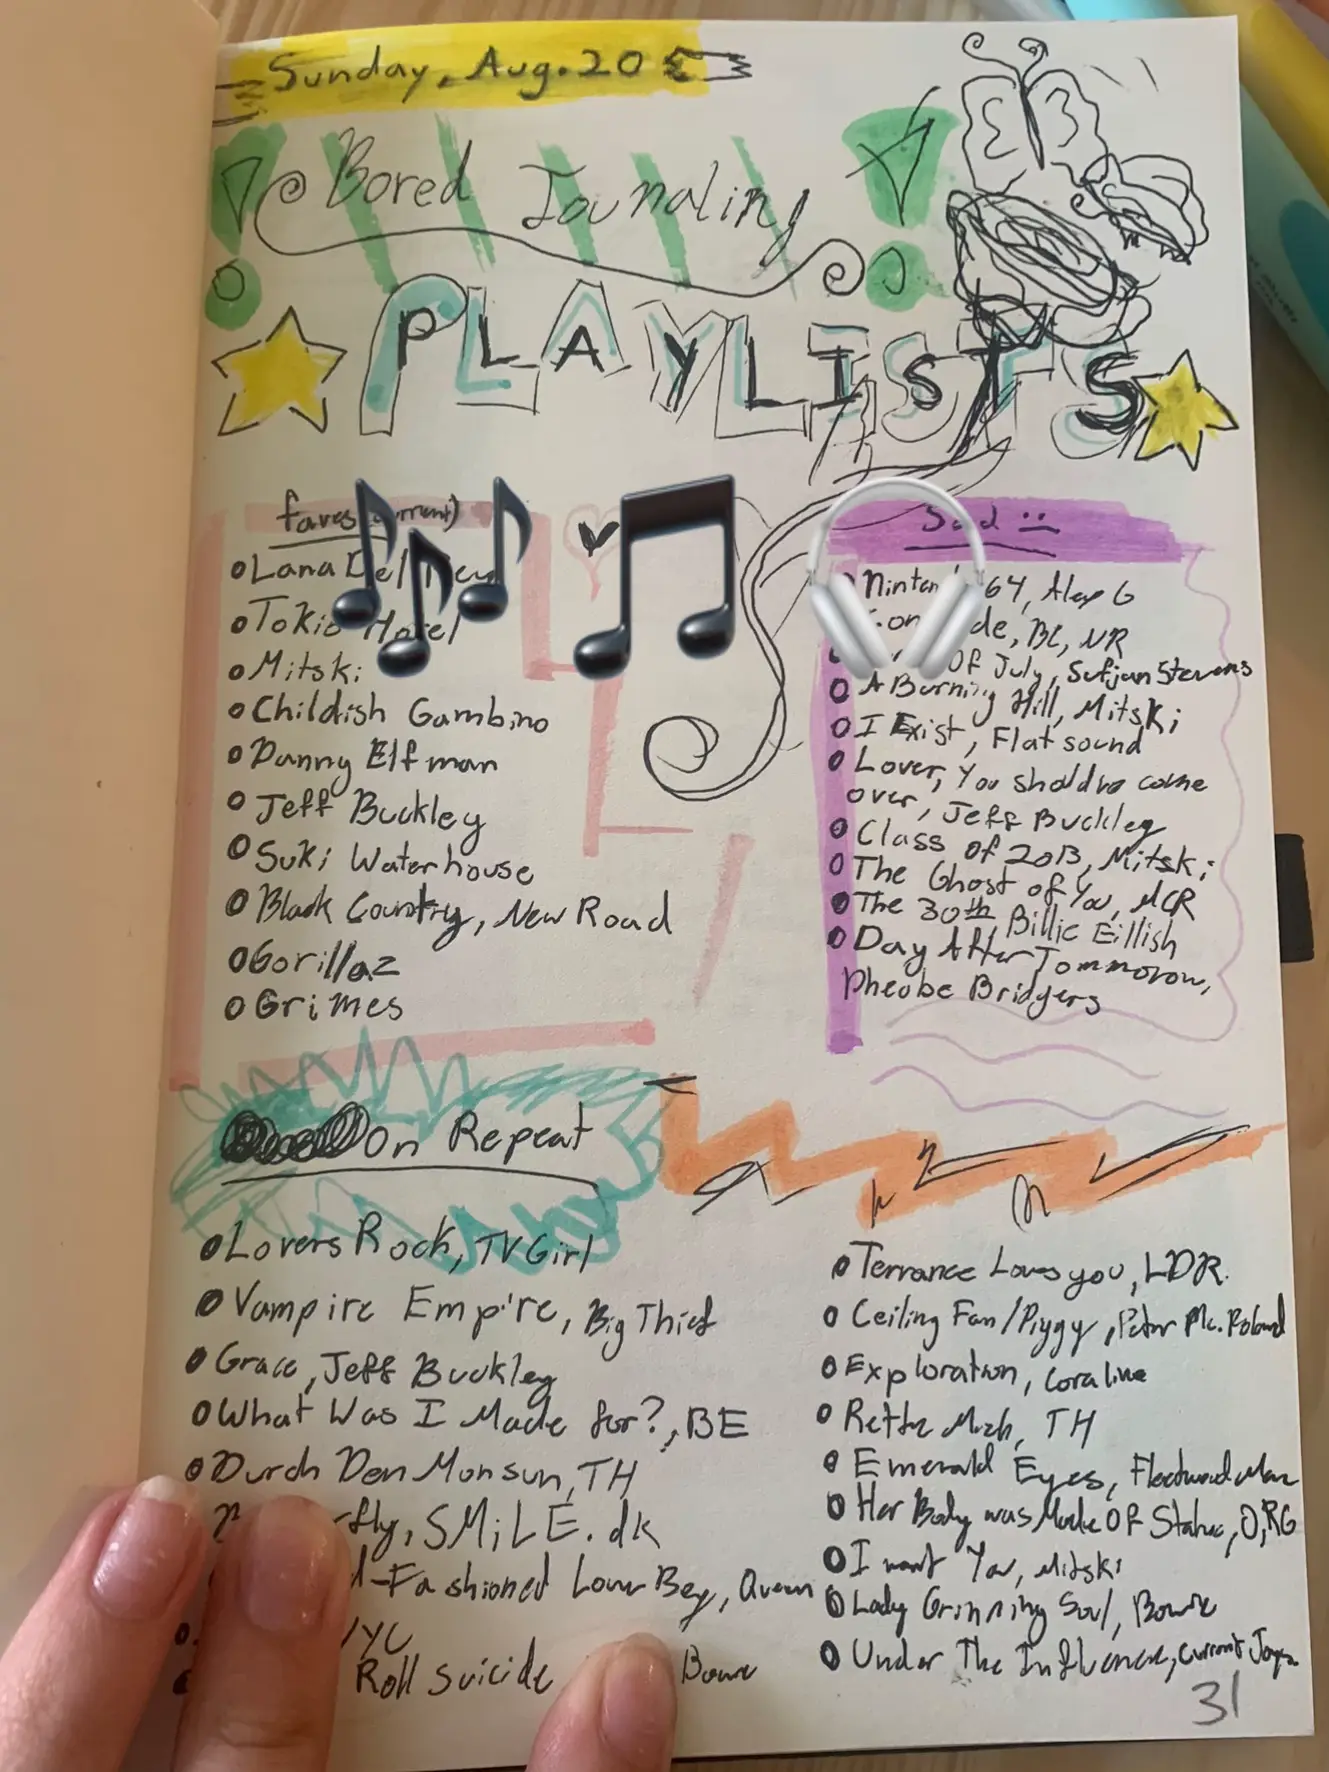 Sunday, Aug. 20
Bored Jounaling
PLAYLISTS
faves
Lana Del
Tokio Hotel
Mitski
Childish Gambino
Danny Elfman
Jeff Buckley
Suki Waterhouse
Black Country, New Road
Gorillaz
Grimes
Sad
64, Alex G
BC, NR
Of July, Sufjan Stevens
A Burning Hill, Mitski
I Exist, Flatsound
Lover, You should've come
over, Jeff Buckley
Class of 2013, Mitski
The Ghost of You, MCR
The 30th Billie Eillish
Day After Tommorow,
Pheobe Bridgers
On Repeat
Lovers Rock, TV Girl
Vampire Empire, Big Thief
Grace, Jeff Buckley
What Was I Made for?, BE
Durch Den Monsun, TH
SMiLE.dk
Fashioned Lover Boy, Queen
Roll Suicide Bowie
Terrance Loves you, LDR.
Ceiling Fan/Piggy, Peter Mc. Poland
Exploration, Coraline
TH
Emerald Eyes, Fleetwood Mac
Her Body was Made Of Statue, O, RG
I want You, Mitski
Lady Grinning Soul, Bowie
Under The Influence, Current Joys
31